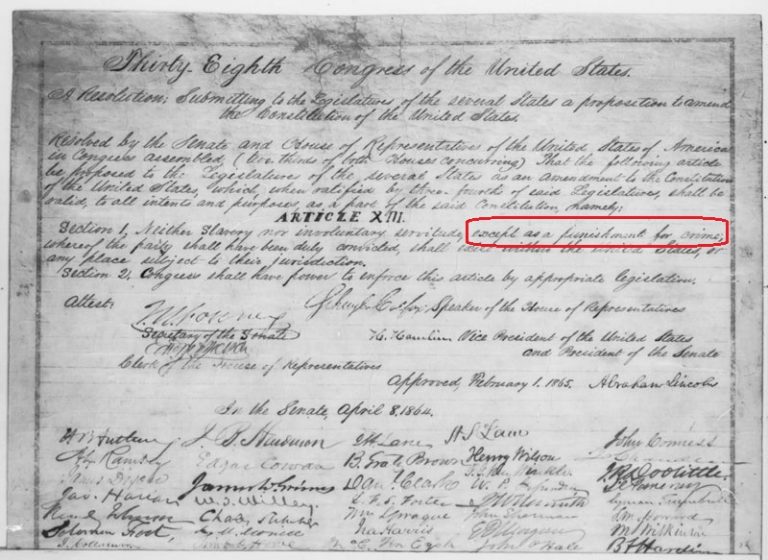 Thirty-Eighth Congress of the United States.
A Resolution; Submitting to the Legislatures of the several States a proposition to amend
the Constitution of the United States.
Resolved by the Senate and House of Representatives of the United States of America
in Congress assembled, (two thirds of both Houses concurring) That the following article
be proposed to the Legislatures of the several States as an amendment to the Constitution
of the United States, which, when ratified by three-fourth of said Legislatures, shall be
valid, to all intents and purposes, as a part of the said Constitution, namely;
ARTICLE XIII.
Section 1, Neither Slavery nor involuntary servitude, except as a punishment for crime,
whereof the party shall have been duly convicted, shall exist within the United States, or
any place subject to their jurisdiction.
Section 2. Congress shall have power to enforce this article by appropriate legislation.
Attest:
Schuyler Colfax Speaker of the House of Representatives
J. W. Forney
Secretary of the Senate
H. Hamlin Vice President of the United States
and President of the Senate
Clerk of the House of Representatives
Approved, February 1. 1865. Abraham Lincoln
In the Senate, April 8, 1864.
John Conness
Edgar Cowan B. Gratz Brown Henry Wilson
Dan Clark J. R. Doolittle
James Harlan W. T. Willey
L. F. S. Foster Lyman Trumbull
Wm Sprague John Sherman
Solomon Foot Ira Harris